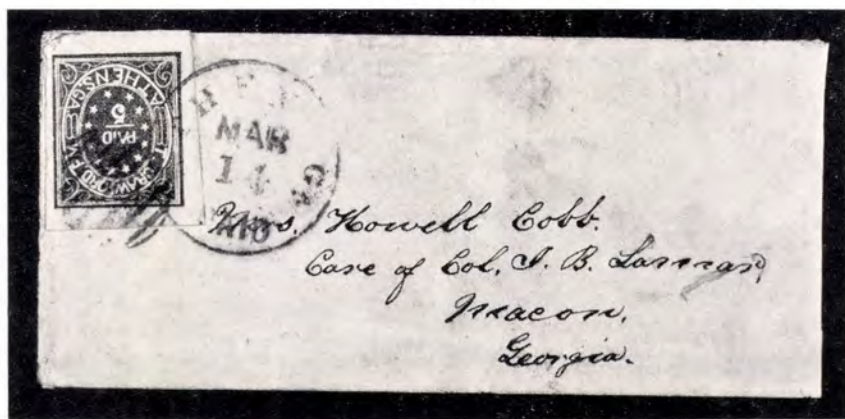 T. CRAWFORD P.M.
PAID
5
ATHENS.GA.
MAR
14
Mrs. Howell Cobb.
Care of Col. J. B. Lamar,
Macon,
Georgia.